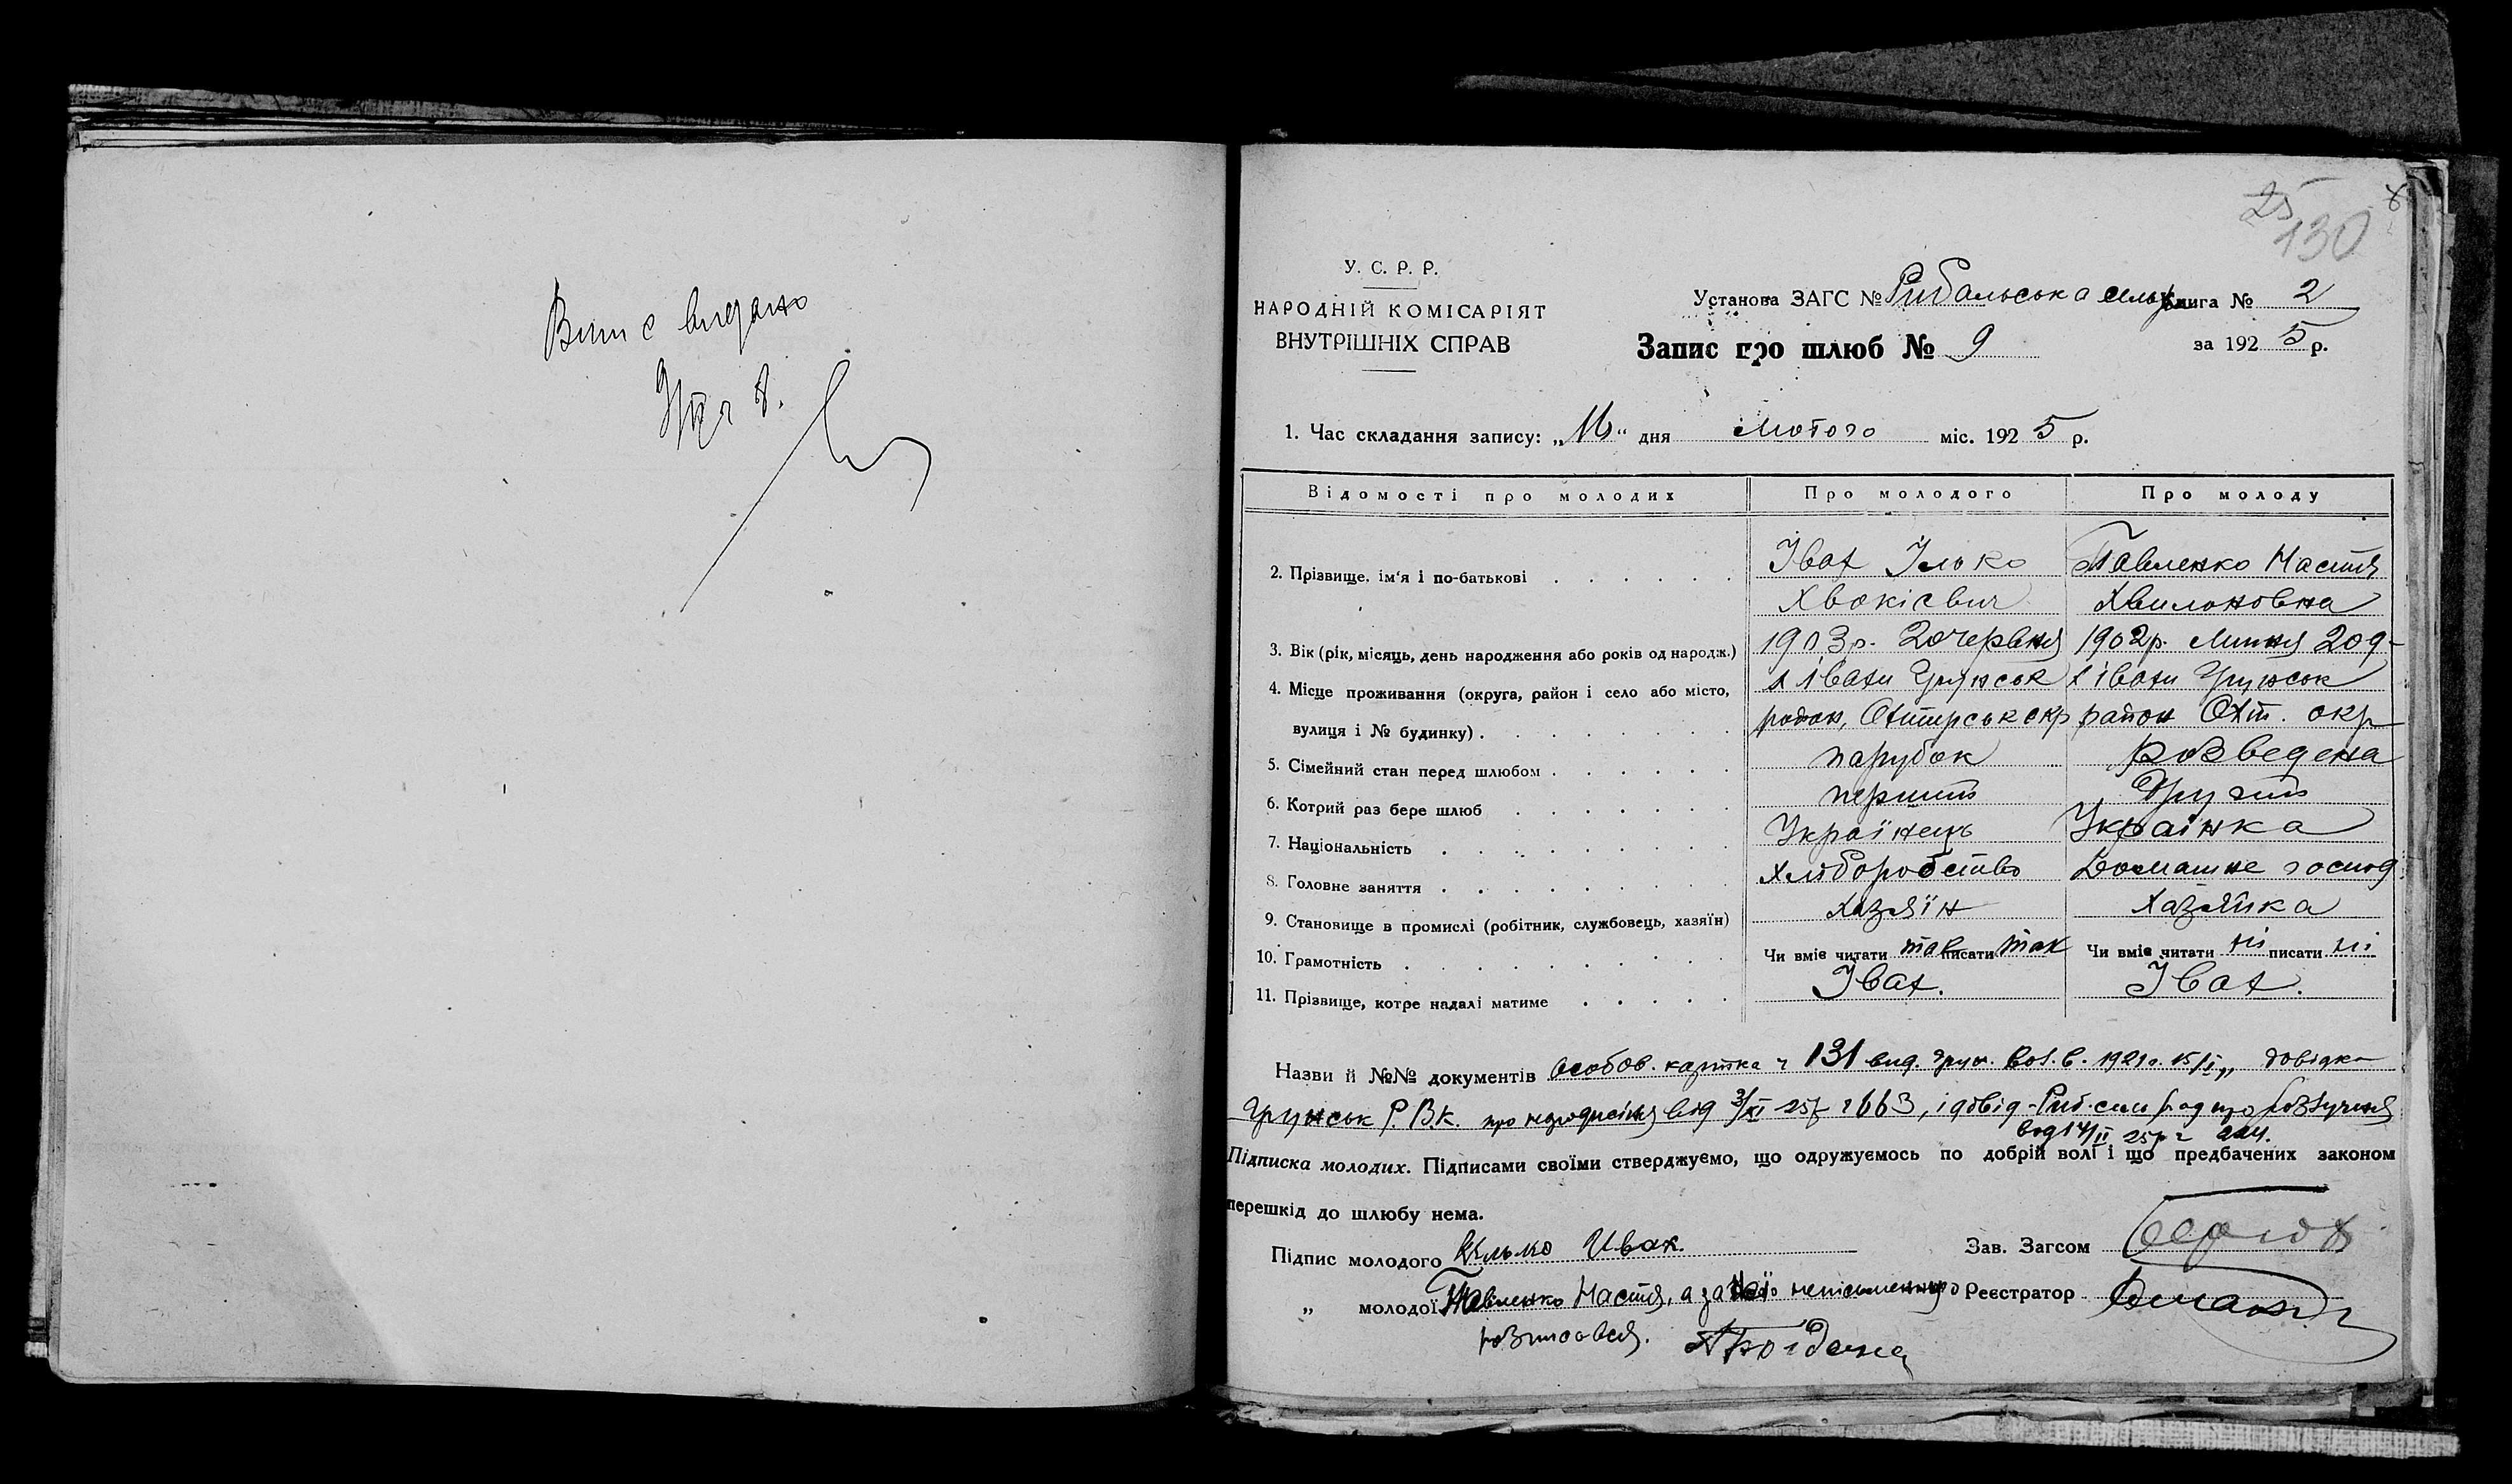 Вип с видано
25
130
У. С. Р. Р.
НАРОДНІЙ КОМІСАРІЯТ
ВНУТРІШНІХ СПРАВ
Установа ЗАГС № Рибальська сільр Книга № 2
Запис про шлюб № 9 за 1925 р.
1. Час складання запису: „16“ дня Лютого міс. 1925 р.
Відомості про молодих Про молодого Про молоду
2. Прізвище, ім'я і по-батькові Івах Ілько Павленко Настя
Хвокієвич Хвилоновна
3. Вік (рік, місяць, день народження або років од народж.) 1903р. 20 червня 1902р. Липня 20 д-
4. Місце проживання (округа, район і село або місто, х Івахи Грунськ х Івахи Грунськ
вулиця і № будинку) район, Охтирськ окр район Охт. окр
5. Сімейний стан перед шлюбом парубок розведена
6. Котрий раз бере шлюб перший Другий
7. Національність Українець Українка
8. Головне заняття Хліборобство Домашне господ
9. Становище в промислі (робітник, службовець, хазяїн) Хазяїн Хазяйка
10. Грамотність Чи вміє читати так писати так Чи вміє читати ні писати ні
11. Прізвище, котре надалі матиме Івах. Івах.
Назви й №№ документів особов. картка ч 131 вид. Грун. Вол. в. 1921р. 15/I, довідка
Грунськ Р.В.К. про народження від 3/XI 25р ч 663, і довід. Риб. сил рад про розлучення
від 14/II 25р ч
Підписка молодих. Підписами своїми стверджуємо, що одружуємось по добрій волі і що предбачених законом
перешкід до шлюбу нема.
Підпис молодого Илько Ивах. Зав. Загсом
„ молодої Павленко Настя, а за неї неписьменну Реєстратор
розписався.